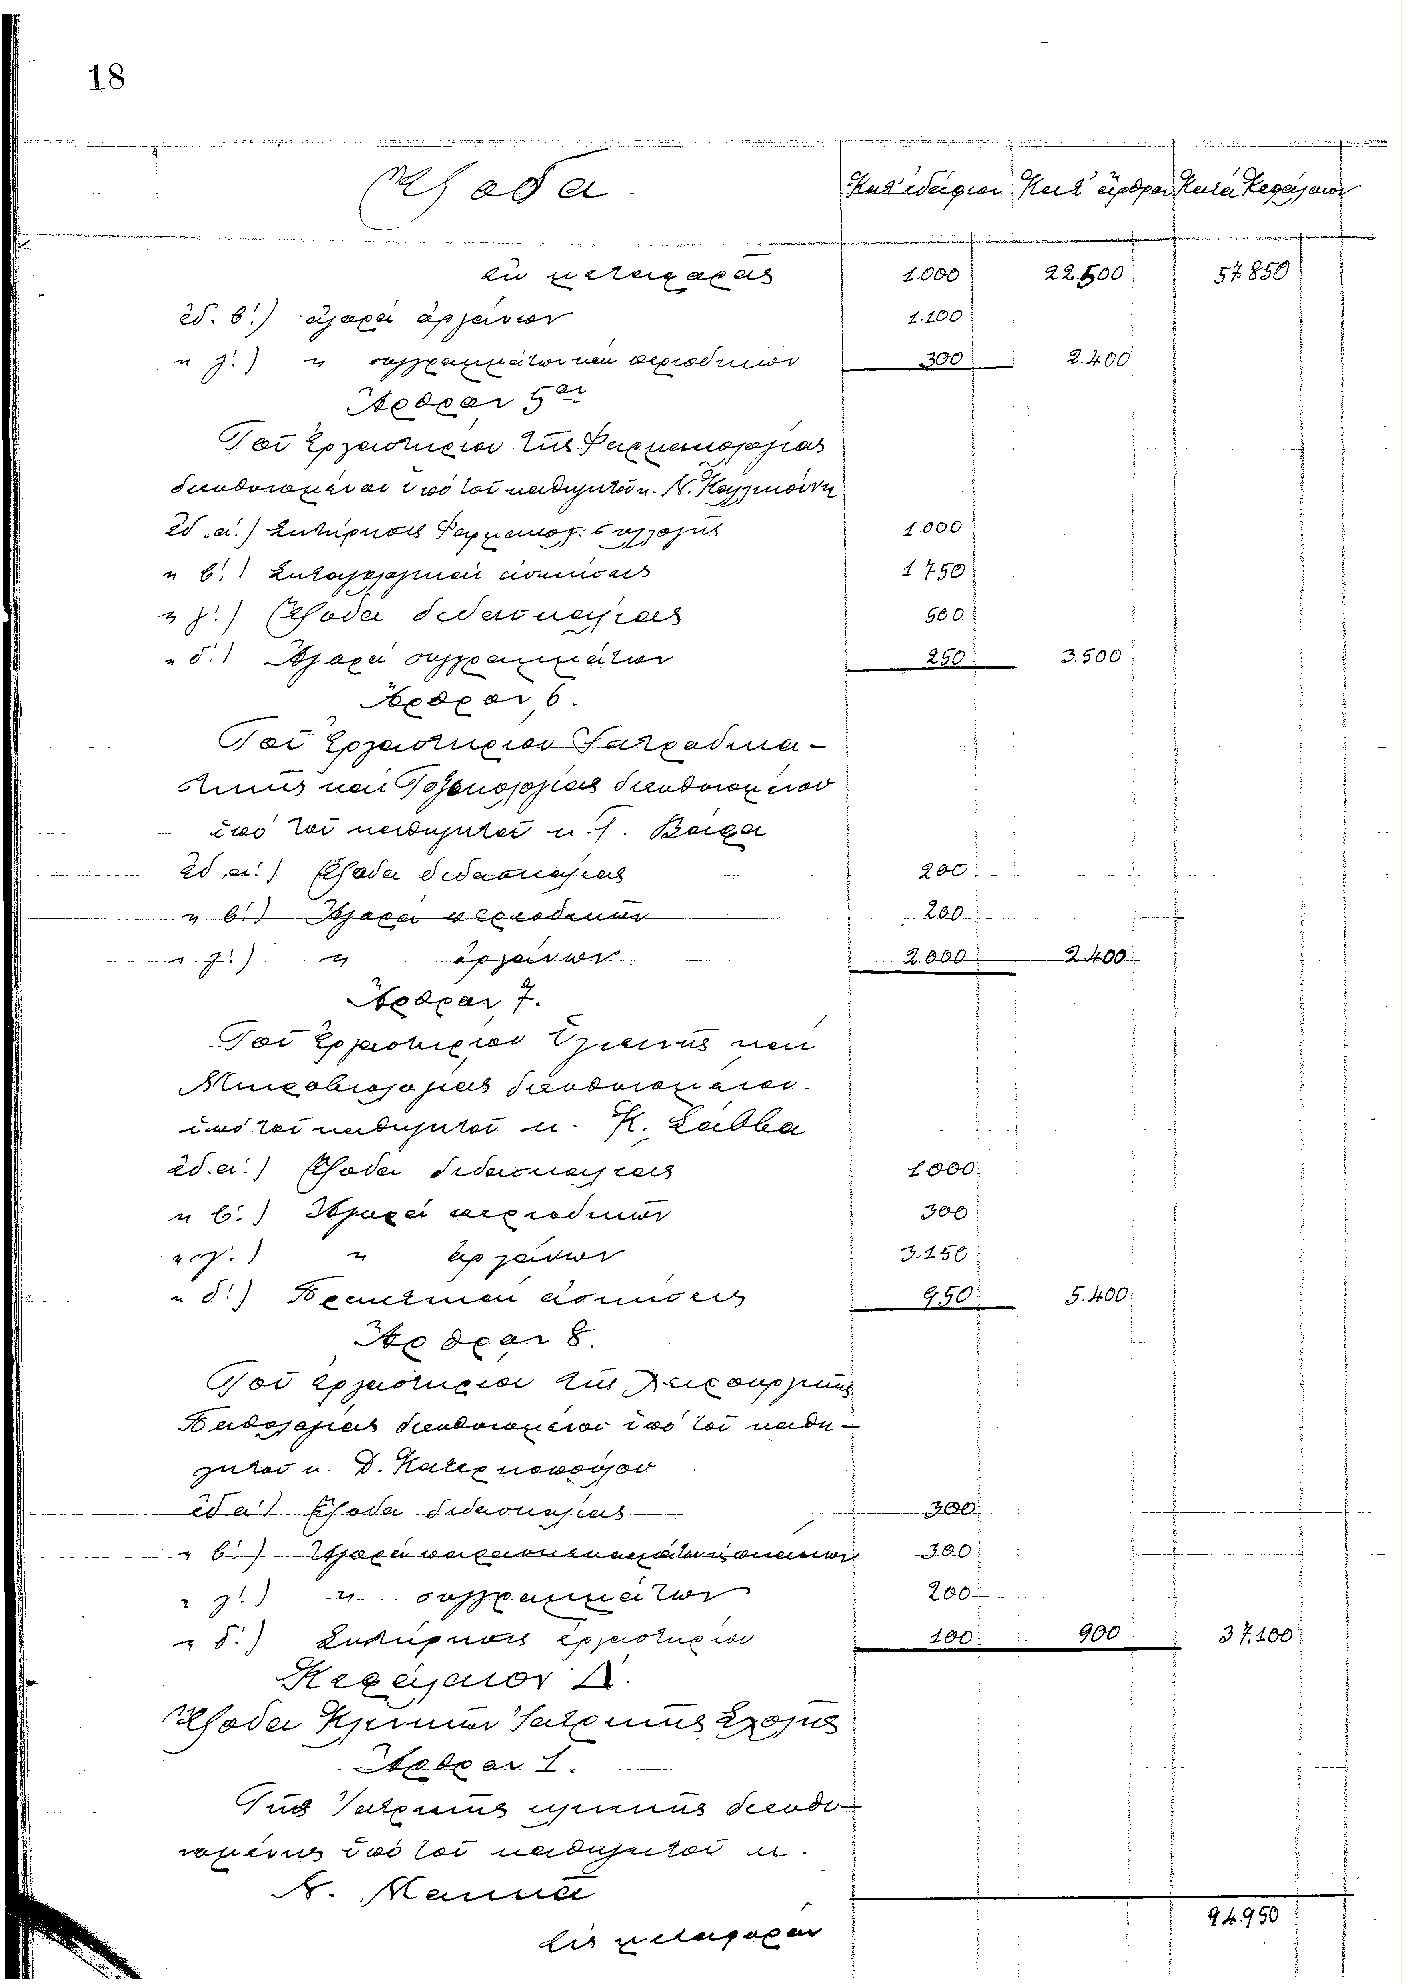 18
Ἔξοδα Κατ' ἐδάφιον Κατ' ἄρθρον Κατὰ Κεφάλαιον
ἐκ μεταφορᾶς 1.000 22.500 57.850
ἐδ. β′.) ἀγορὰ ὀργάνων 1.100
" γ′.) " συγγραμμάτων καὶ περιοδικῶν 300 2.400
Ἄρθρον 5ον
Τοῦ Ἐργαστηρίου τῆς Φαρμακολογίας
διευθυνομένου ὑπὸ τοῦ καθηγητοῦ κ.
ἐδ. α′.) Συντήρησις Φαρμακολ. συλλογῆς 1.000
" β′.) Συνταγολογικαὶ ἀσκήσεις 1750
" γ′.) Ἔξοδα διδασκαλίας 500
" δ′.) Ἀγορὰ συγγραμμάτων 250 3.500
Ἄρθρον 6.
Τοῦ Ἐργαστηρίου Ἰατροδικα-
στικῆς καὶ Τοξικολογίας διευθυνομένου
ὑπὸ τοῦ καθηγητοῦ κ. Γ. Βάφα
ἐδ. α′.) Ἔξοδα διδασκαλίας 200
" β′.) Ἀγορὰ περιοδικῶν 200
" γ′.) " ὀργάνων 2.000 2.400
Ἄρθρον 7.
Τοῦ Ἐργαστηρίου Ὑγιεινῆς καὶ
Μικροβιολογίας διευθυνομένου
ὑπὸ τοῦ καθηγητοῦ κ. Κ. Σάββα
ἐδ. α′.) Ἔξοδα διδασκαλίας 1000
" β′.) Ἀγορὰ περιοδικῶν 300
" γ′.) " ὀργάνων 3.150
" δ′.) Πρακτικαὶ ἀσκήσεις 950 5.400
Ἄρθρον 8.
Τοῦ ἐργαστηρίου τῆς Χειρουργικῆς
Παθολογίας διευθυνομένου ὑπὸ τοῦ καθη-
γητοῦ κ. Δ. Κατερινοπούλου
ἐδ. α′.) Ἔξοδα διδασκαλίας 300
" β′.) Ἀγορὰ παρασκευασμάτων 300
" γ′.) " συγγραμμάτων 200
" δ′.) Συντήρησις ἐργαστηρίου 100 900 37.100
Κεφάλαιον Δ′.
Ἔξοδα Κλινικῶν Ἰατρικῆς Σχολῆς
Ἄρθρον 1.
Τῆς Ἰατρικῆς κλινικῆς διευθυ-
νομένης ὑπὸ τοῦ καθηγητοῦ κ.
94.950
εἰς μεταφοράν